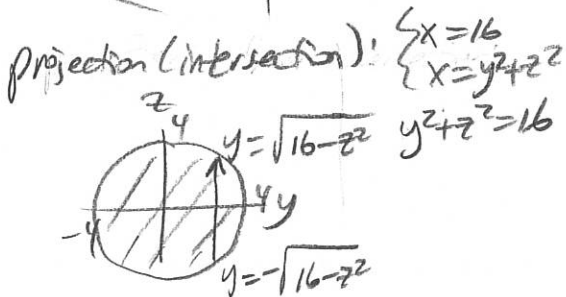 projection (intersection): { x = 16
{ x = y² + z²
y² + z² = 16
z
4
y = √16 - z²
4 y
-4
y = -√16 - z²